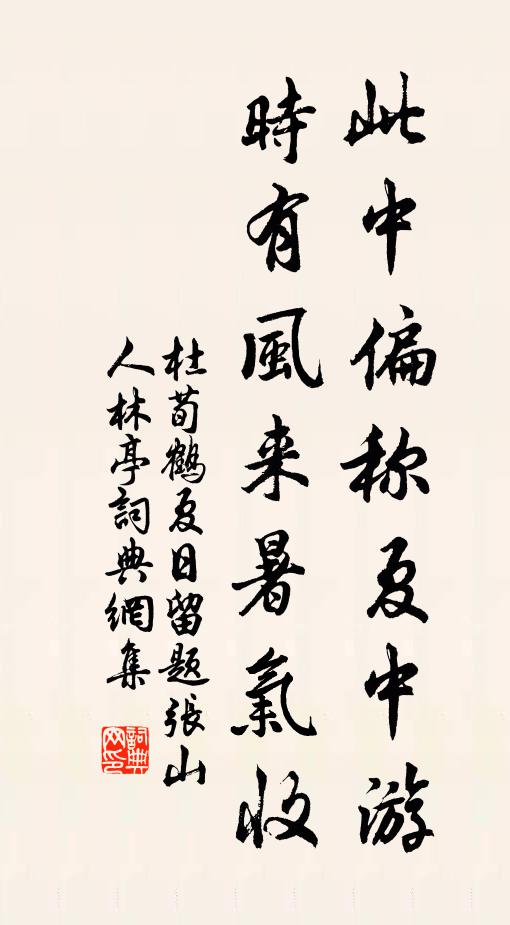 此中偏称夏中游
時有風来暑氣收
杜荀鶴夏日留題張山
人林亭詞典網集
詞典
网印